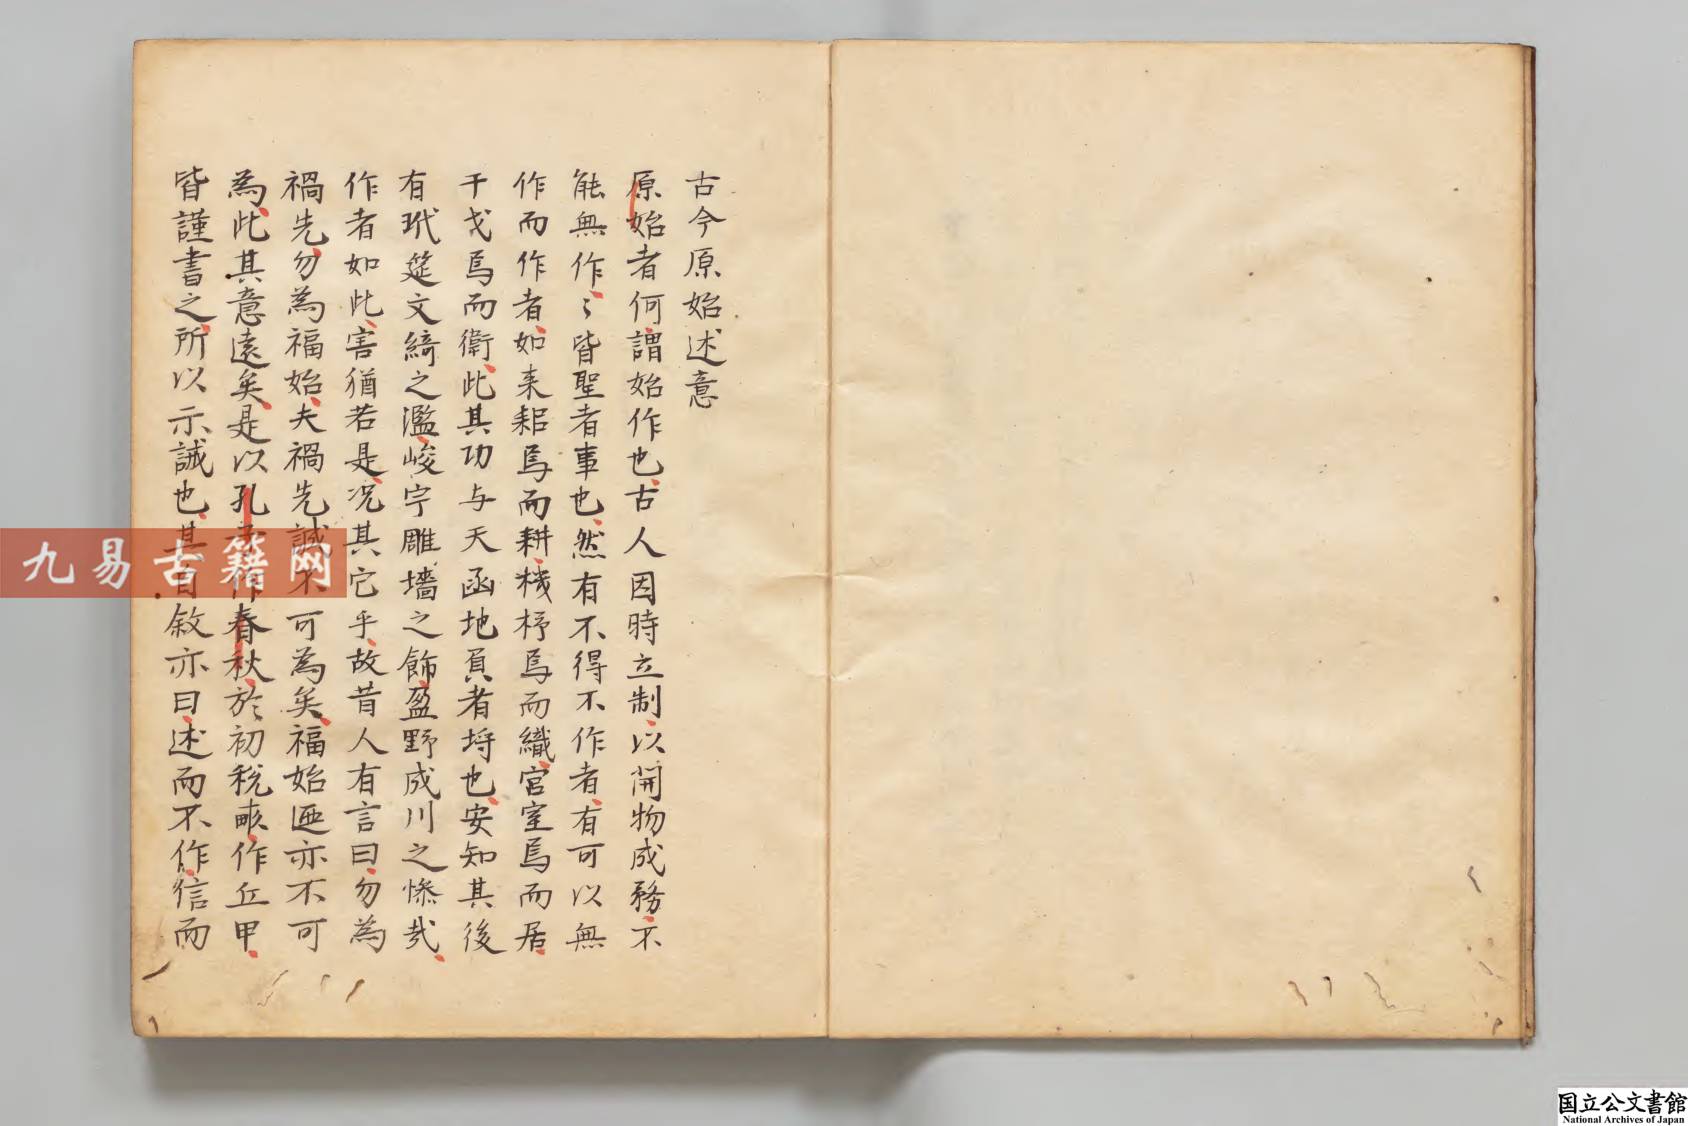 古今原始述意
原始者何謂始作也古人因時立制以開物成務不
能無作〻皆聖者事也然有不得不作者有可以無
作而作者如耒耜焉而耕機杼焉而織宮室焉而居
干戈焉而衛此其功与天函地負者埒也安知其後
有玳筵文綺之濫峻宇雕墻之飾盈野成川之慘哉
作者如此害猶若是况其它乎故昔人有言曰勿為
禍先勿為福始夫禍先誠不可為矣福始迺亦不可
為此其意遠矣是以孔子作春秋於初税畝作丘甲
皆謹書之所以示誡也其自敘亦曰述而不作信而
九易古籍网
国立公文書館
National Archives of Japan